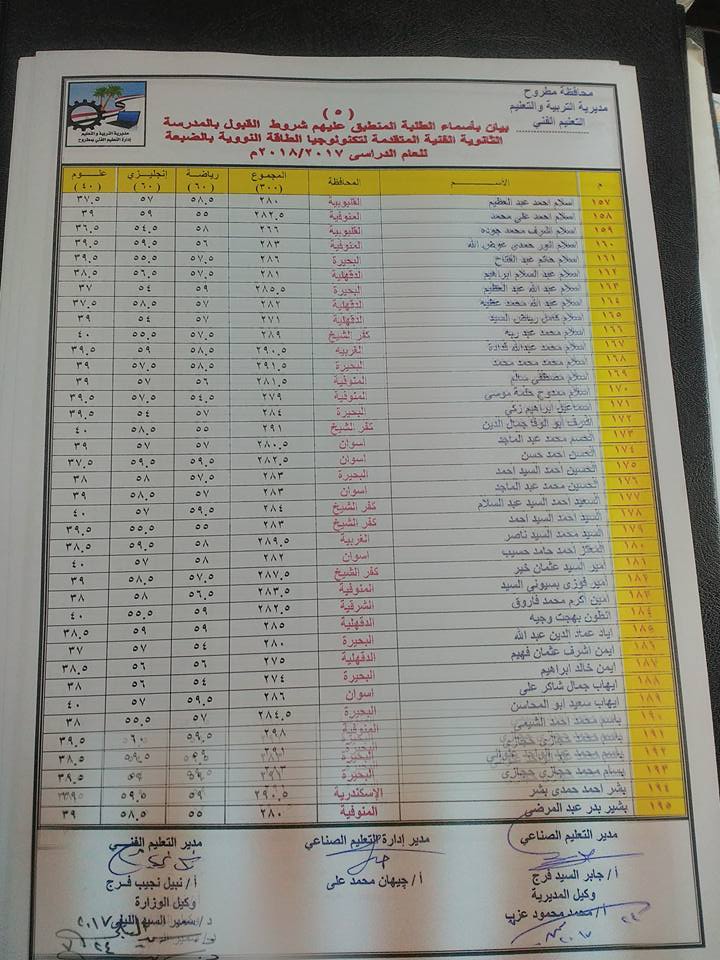 محافظة مطروح
مديرية التربية والتعليم
التعليم الفني
مديرية التربية والتعليم
إدارة التعليم الفني بمطروح
(٥)
بيان بأسماء الطلبة المنطبق عليهم شروط القبول بالمدرسة
الثانوية الفنية المتقدمة لتكنولوجيا الطاقة النووية بالضبعة
للعام الدراسى ٢٠١٨/٢٠١٧م
م الاســم المحافظة المجموع (٣٠٠) رياضة (٦٠) إنجليزى (٦٠) علـوم (٤٠)
١٥٧ اسلام احمد عبد العظيم القليوبية ٢٨٠ ٥٨.٥ ٥٧ ٣٧.٥
١٥٨ اسلام احمد على محمد المنوفية ٢٨٢.٥ ٥٥ ٥٩ ٣٩
١٥٩ اسلام اشرف محمد جوده القليوبية ٢٦٦ ٥٨ ٥٤.٥ ٣٦.٥
١٦٠ اسلام انور حمدى عوض الله المنوفية ٢٨٣ ٥٦ ٥٩.٥ ٣٩.٥
١٦١ اسلام حاتم عبد الفتاح البحيرة ٢٨٦ ٥٧.٥ ٥٥.٥ ٣٩.٥
١٦٢ اسلام عبد السلام ابراهيم الدقهلية ٢٨١ ٥٧ ٥٦.٥ ٣٨.٥
١٦٣ اسلام عبد الله عبد العظيم البحيرة ٢٨٥.٥ ٥٩ ٥٤ ٣٧
١٦٤ اسلام عبد الله محمد عطيه الدقهلية ٢٨٢ ٥٧ ٥٨.٥ ٣٧.٥
١٦٥ اسلام رياض السيد الدقهلية ٢٧١ ٥٧ ٥٤ ٣٩
١٦٦ اسلام محمد عبد ربه كفر الشيخ ٢٨٩ ٥٧.٥ ٥٥.٥ ٤٠
١٦٧ اسلام محمد عبدالله الغربيه ٢٩٠.٥ ٥٨.٥ ٥٩ ٣٩.٥
١٦٨ اسلام محمد محمد محمد البحيرة ٢٩١.٥ ٥٨.٥ ٥٧.٥ ٣٩
١٦٩ اسلام مصطفى سالم المنوفية ٢٨١.٥ ٥٦ ٥٧ ٣٩
١٧٠ اسلام ممدوح موسى المنوفية ٢٧٩ ٥٤.٥ ٥٧.٥ ٣٩.٥
١٧١ اسماعيل ابراهيم زكي البحيرة ٢٨٤ ٥٧ ٥٤ ٣٩.٥
١٧٢ اشرف ابو الوفا جمال الدين كفر الشيخ ٢٩١ ٥٥ ٥٨.٥ ٤٠
١٧٣ محمد عبد الماجد أسوان ٢٨٠.٥ ٥٧ ٥٧ ٣٩
١٧٤ الحسن احمد حسن أسوان ٢٨٢.٥ ٥٩.٥ ٥٩.٥ ٣٧.٥
١٧٥ الحسين احمد السيد احمد البحيرة ٢٨٣ ٥٧ ٥٨ ٣٨
١٧٦ الحسين محمد عبد الماجد أسوان ٢٨٣ ٥٧ ٥٨.٥ ٣٩
١٧٧ السعيد احمد السيد عبد السلام كفر الشيخ ٢٨٤ ٥٩.٥ ٥٧ ٤٠
١٧٨ السيد احمد السيد احمد كفر الشيخ ٢٨٣ ٥٥ ٥٥.٥ ٣٩.٥
١٧٩ السيد محمد السيد ناصر الغربية ٢٨٩.٥ ٥٨ ٥٩.٥ ٣٨.٥
١٨٠ المعتز احمد حامد حسيب أسوان ٢٨٢ ٥٨ ٥٧ ٤٠
١٨١ أمير السيد عثمان خير كفر الشيخ ٢٨٧.٥ ٥٧.٥ ٥٨.٥ ٣٩
١٨٢ أمير فوزى بسيونى السيد المنوفية ٢٨٣.٥ ٥٦.٥ ٥٨ ٣٨
١٨٣ امين اكرم محمد فاروق الشرقية ٢٨٢.٥ ٥٩ ٥٥.٥ ٤٠
١٨٤ انطون بهجت وجيه الدقهلية ٢٨٥ ٥٩ ٥٩ ٣٨.٥
١٨٥ اياد عماد الدين عبد الله البحيرة ٢٨٠ ٥٤ ٥٧ ٣٧
١٨٦ ايمن اشرف عثمان فهيم الدقهلية ٢٧٥ ٥٦ ٥٦ ٣٨.٥
١٨٧ ايمن خالد ابراهيم البحيرة ٢٧٤ ٥٤ ٥٦ ٣٨
١٨٨ ايهاب جمال شاكر على أسوان ٢٨٦ ٥٩.٥ ٥٧ ٤٠
١٨٩ ايهاب سعيد ابو المحاسن البحيرة ٢٨٤.٥ ٥٧ ٥٥.٥ ٣٨
١٩٠ باسم محمد احمد الشيمي المنوفية ٢٩٨ ٥٩.٥ ٦٠ ٣٩.٥
١٩١ حجازى البحيرة ٢٩١ ٣٨.٥
١٩٢ باسم محمد البحيرة ٣٩.٥
١٩٣ بسام محمد حجازى حجازى البحيرة
١٩٤ بشر احمد حمدى بشر الاسكندرية ٢٩٠.٥ ٥٩ ٥٩.٥
١٩٥ بشير بدر عبد المرضى المنوفية ٢٨٠ ٥٥ ٥٨.٥ ٣٩
مدير التعليم الصناعي مدير إدارة التعليم الصناعي مدير التعليم الفني
أ / جابر السيد فرج أ / جيهان محمد على أ / نبيل نجيب فرج
وكيل المديرية وكيل الوزارة
أ/ محمد محمود عزب د/ سمير السيد